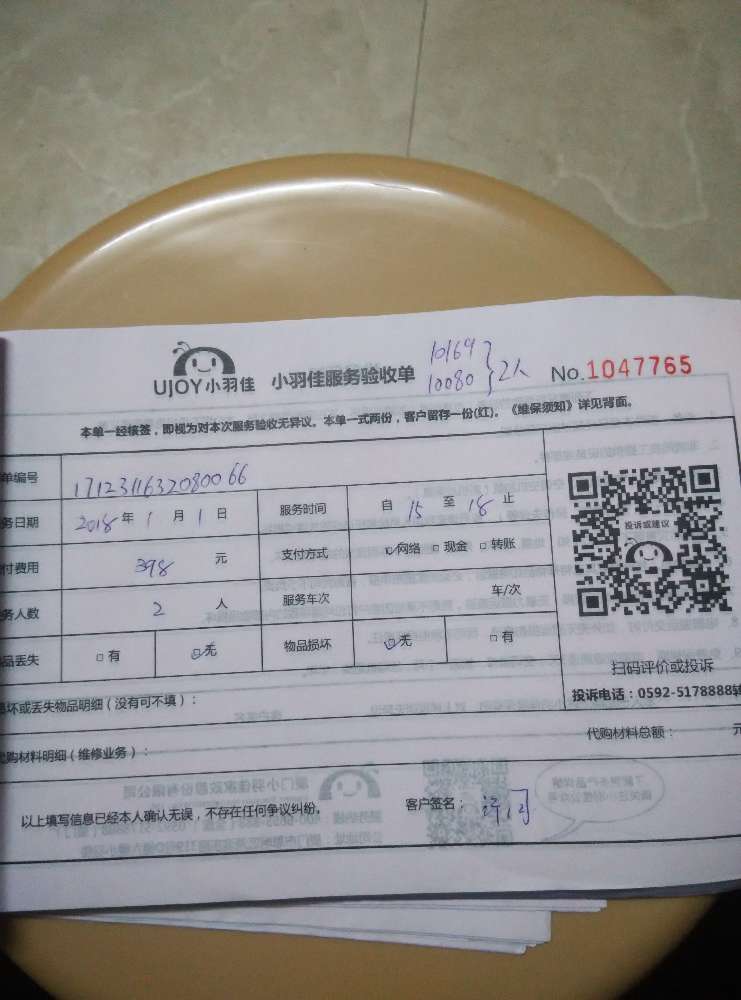 UJOY小羽佳 小羽佳服务验收单 10169 10080 2人 No.1047765
本单一经核签，即视为对本次服务验收无异议。本单一式两份，客户留存一份(红)。《维保须知》详见背面。
单编号 1712311632080066
务日期 2018年1月1日 服务时间 自15至18止
付费用 398元 支付方式 网络 现金 转账
务人数 2人 服务车次 车/次
品丢失 有 无 物品损坏 无 有
投诉或建议
扫码评价或投诉
投诉电话：0592-5178888转
损坏或丢失物品明细（没有可不填）：
代购材料明细（维修业务）： 代购材料总额： 元
以上填写信息已经本人确认无误，不存在任何争议纠纷。 客户签名：